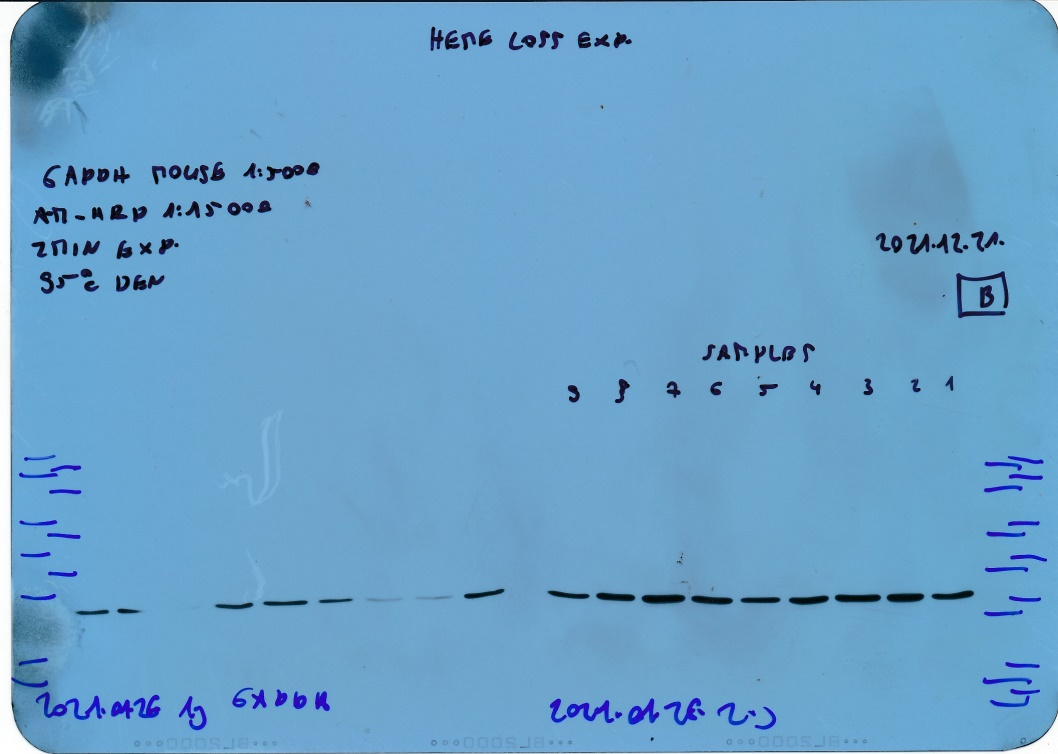 HEME LOSS EXP.
GAPDH MOUSE 1:5000
AM-HRP 1:15000
2MIN EXP.
95°C DEN
2021.12.21.
B
SAMPLES
9 8 7 6 5 4 3 2 1
GAPDH